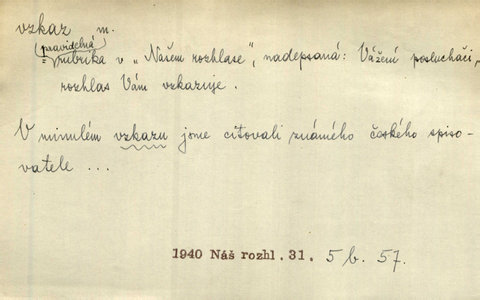 vzkaz m.
pravidelná
= rubrika v „Našem rozhlase", nadepsaná: Vážení posluchači,
rozhlas Vám vzkazuje.
V minulém vzkazu jsme citovali známého českého spiso-
vatele ...
1940 Náš rozhl. 31. 5 b. 57.